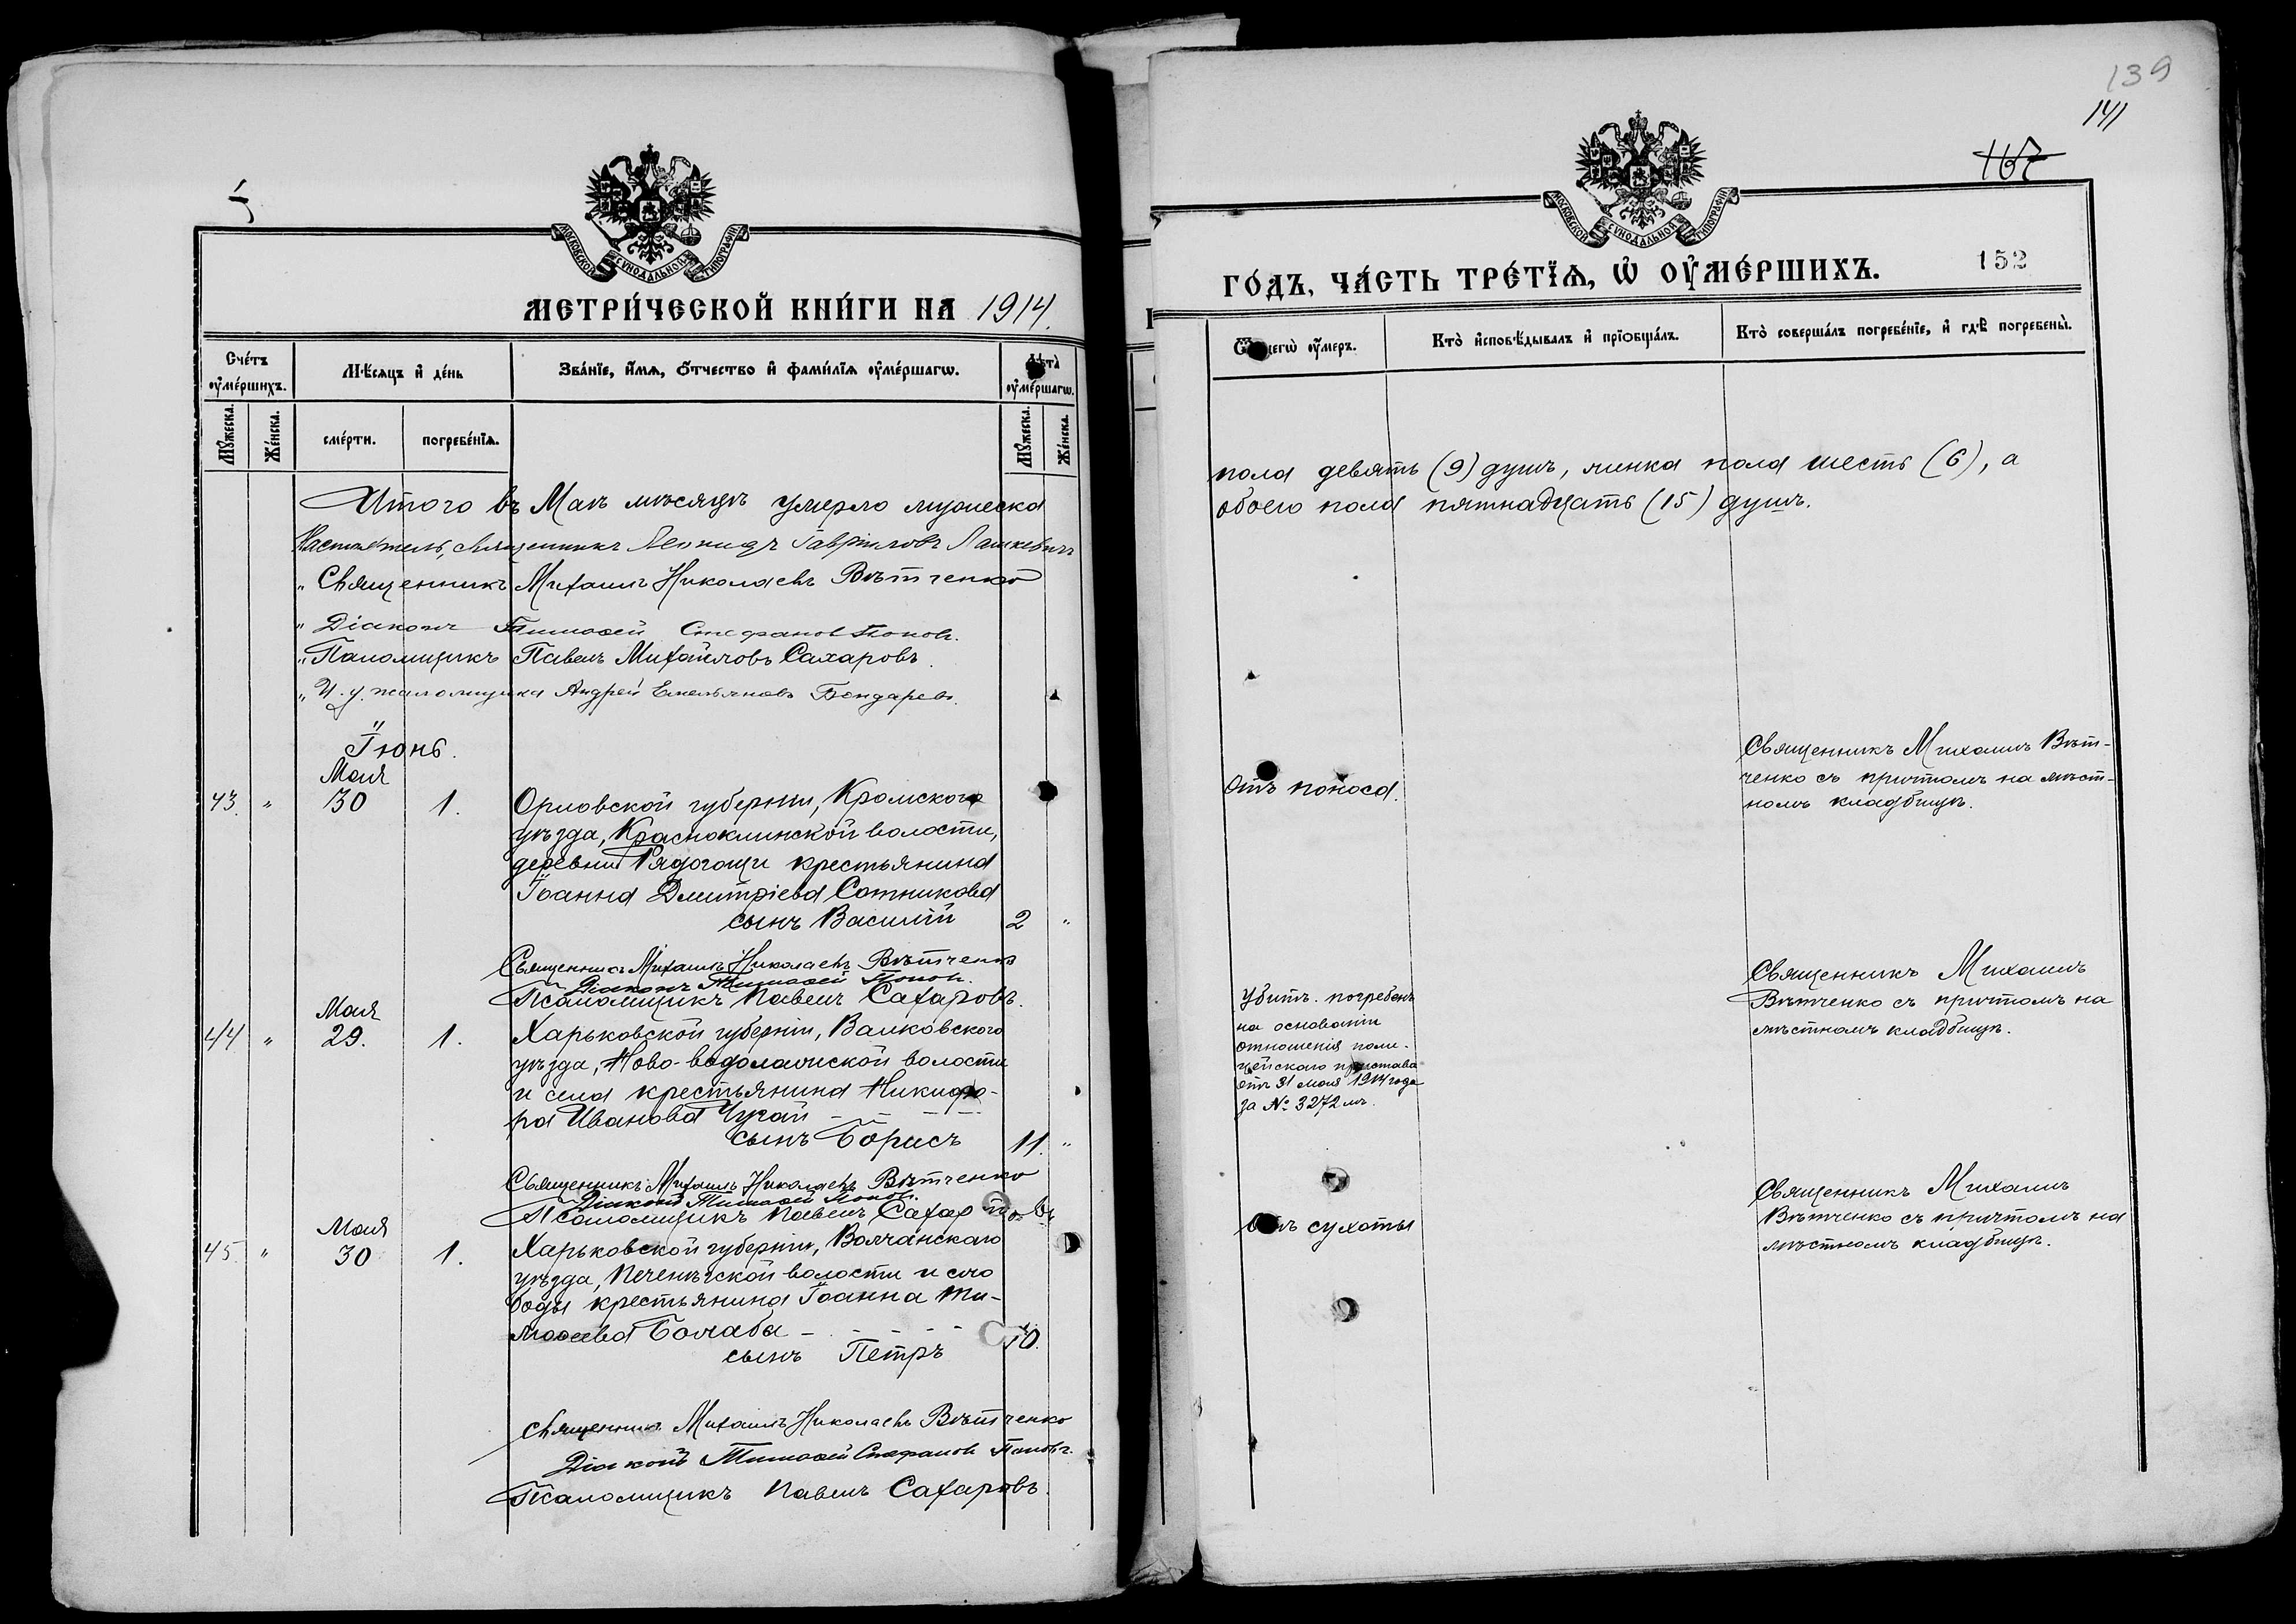 5
МОСКОВСКОЙ СѴНОДАЛЬНОЙ ТИПОГРАФІИ
МЕТРИ́ЧЕСКОЙ КНИ́ГИ НА 1914.
Сче́тъ ᲂу҆ме́ршихъ.
Мѣ́сяцъ и҆ де́нь
Зва́нїе, и҆́мѧ, ѻ҆́тчество и҆ фами́лїѧ ᲂу҆ме́ршагѡ.
Лѣ́та ᲂу҆ме́ршагѡ.
Мꙋ́жеска.
Же́нска.
сме́рти.
погребе́нїѧ.
Мꙋ́жеска.
Же́нска.
Итого въ Маѣ мѣсяцѣ умерло мужеска
Настоятель, Священникъ Леонидъ Гавріиловъ Лашкевичъ
" Священникъ Михаилъ Николаевъ Вѣтченко
" Діаконъ Тимоѳей Стефановъ Поповъ.
" Псаломщикъ Павелъ Михайловъ Сахаровъ.
" И. д. псаломщика Андрей Емельяновъ Бондаревъ.
Іюнь.
Мая
43. " 30 1. Орловской губерніи, Кромского
уѣзда, Красноклинской волости,
деревни Рядогощи крестьянина
Іоанна Дмитріева Сотникова
сынъ Василій 2 "
Священникъ Михаилъ Николаевъ Вѣтченко
Діаконъ Тимоѳей Поповъ.
Псаломщикъ Павелъ Сахаровъ.
Мая
44 " 29. 1. Харьковской губерніи, Валковского
уѣзда, Ново-водолажской волости
и села крестьянина Никифо-
ра Иванова Чугай
сынъ Борисъ 11. "
Священникъ Михаилъ Николаевъ Вѣтченко
Діаконъ Тимоѳей Поповъ.
Псаломщикъ Павелъ Сахаровъ
Мая
45. " 30 1. Харьковской губерніи, Волчанскаго
уѣзда, Печенѣжской волости и сло
боды крестьянина Іоанна Ти-
моѳеева Болаба
сынъ Петръ 10.
Священникъ Михаилъ Николаевъ Вѣтченко
Діаконъ Тимоѳей Стефановъ Поповъ.
Псаломщикъ Павелъ Сахаровъ.
139
141
167
МОСКОВСКОЙ СѴНОДАЛЬНОЙ ТИПОГРАФІИ
ГО́ДЪ, ЧА́СТЬ ТРЕ́ТЇѦ, Ѡ҆ ОУ҆МЕ́РШИХЪ.
152
Ѿ чегѡ̀ ᲂу҆́меръ.
Кто̀ и҆сповѣ́дывалъ и҆ прїѡбща́лъ.
Кто̀ соверша́лъ погребе́нїе, и҆ гдѣ̀ погребены̀.
пола девять (9) душъ, женска пола шесть (6), а
обоего пола пятнадцать (15) душъ.
Отъ поноса.
Священникъ Михаилъ Вѣт-
ченко съ причтомъ на мѣст-
номъ кладбищѣ.
Убитъ. погребенъ
на основаніи
отношенія поли-
цейскаго пристава
отъ 31 мая 1914 года
за № 3272 мъ.
Священникъ Михаилъ
Вѣтченко съ причтомъ на
мѣстномъ кладбищѣ.
Отъ сухоты
Священникъ Михаилъ
Вѣтченко съ причтомъ на
мѣстномъ кладбищѣ.